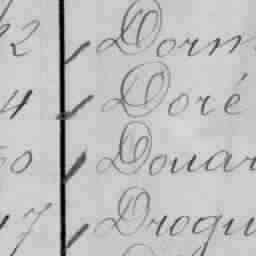 2 Dorm
4 Doré
0 Douar
7 Drogu